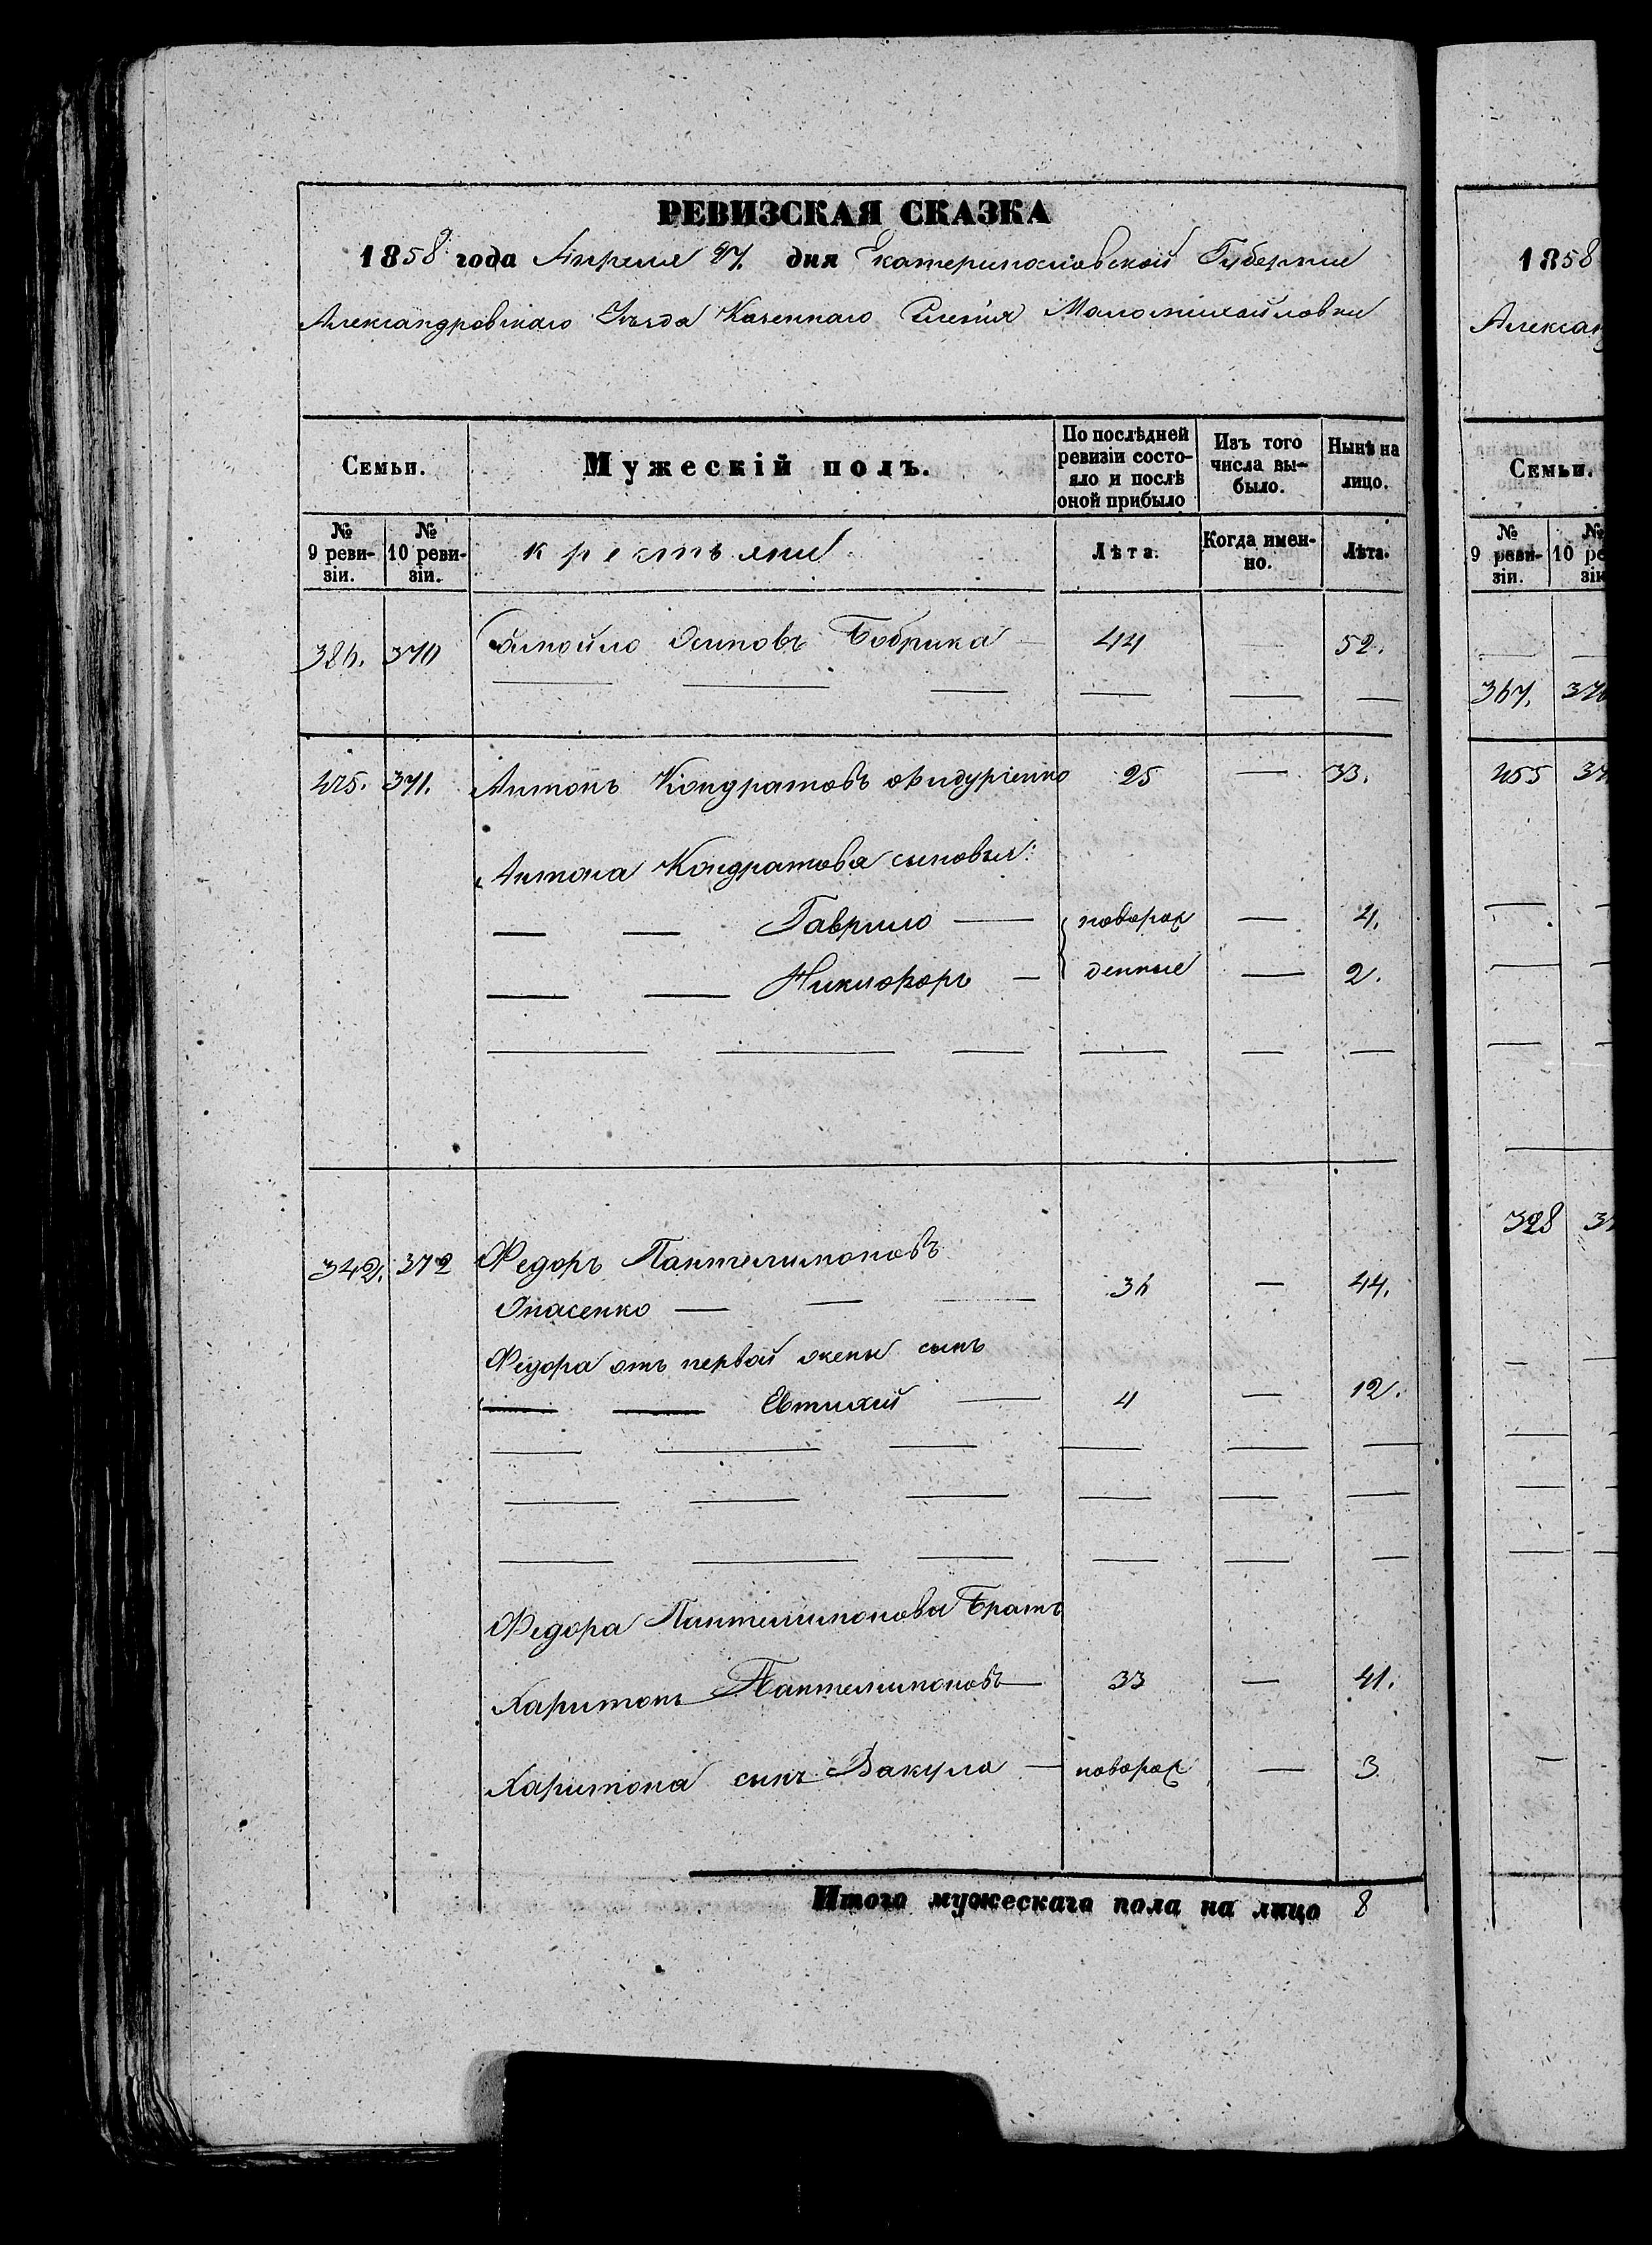 РЕВИЗСКАЯ СКАЗКА
1858 года Апреля дня Екатеринославской Губернии
Александровскаго Уѣзда Казеннаго Селенія Маломихайловки
Семьи. Мужескій полъ. По послѣдней ревизіи состояло и послѣ оной прибыло Изъ того числа вы-было. Нынѣ на лицо.
№ 9 реви-зіи. № 10 реви-зіи. крестьяни Лѣта. Когда имен-но. Лѣта.
386. 370 Самойло Осиповъ Бобрика — 44 — 52.
425. 371. Антонъ Кондратовъ 25 — 33.
Антона Кондратова сыновья:
— — Гаврило — новорож — 4.
— — Никифоръ — денные — 2.
342. 372 Федоръ Пантелимоновъ
Опасенко — — — 36 — 44.
Федора отъ первой жены сынъ
— — Евтихий — 4 — 12.
Федора Пантелимонова Братъ
Харитонъ Пантелимоновъ — 33 — 41.
Харитона сынъ Вакула — новорож — 3
Итого мужескаго пола на лицо 8
1858
Алексан
Семьи.
№ 9 реви-зіи. № 10 ре зіи
367. 370
455 37
328 37